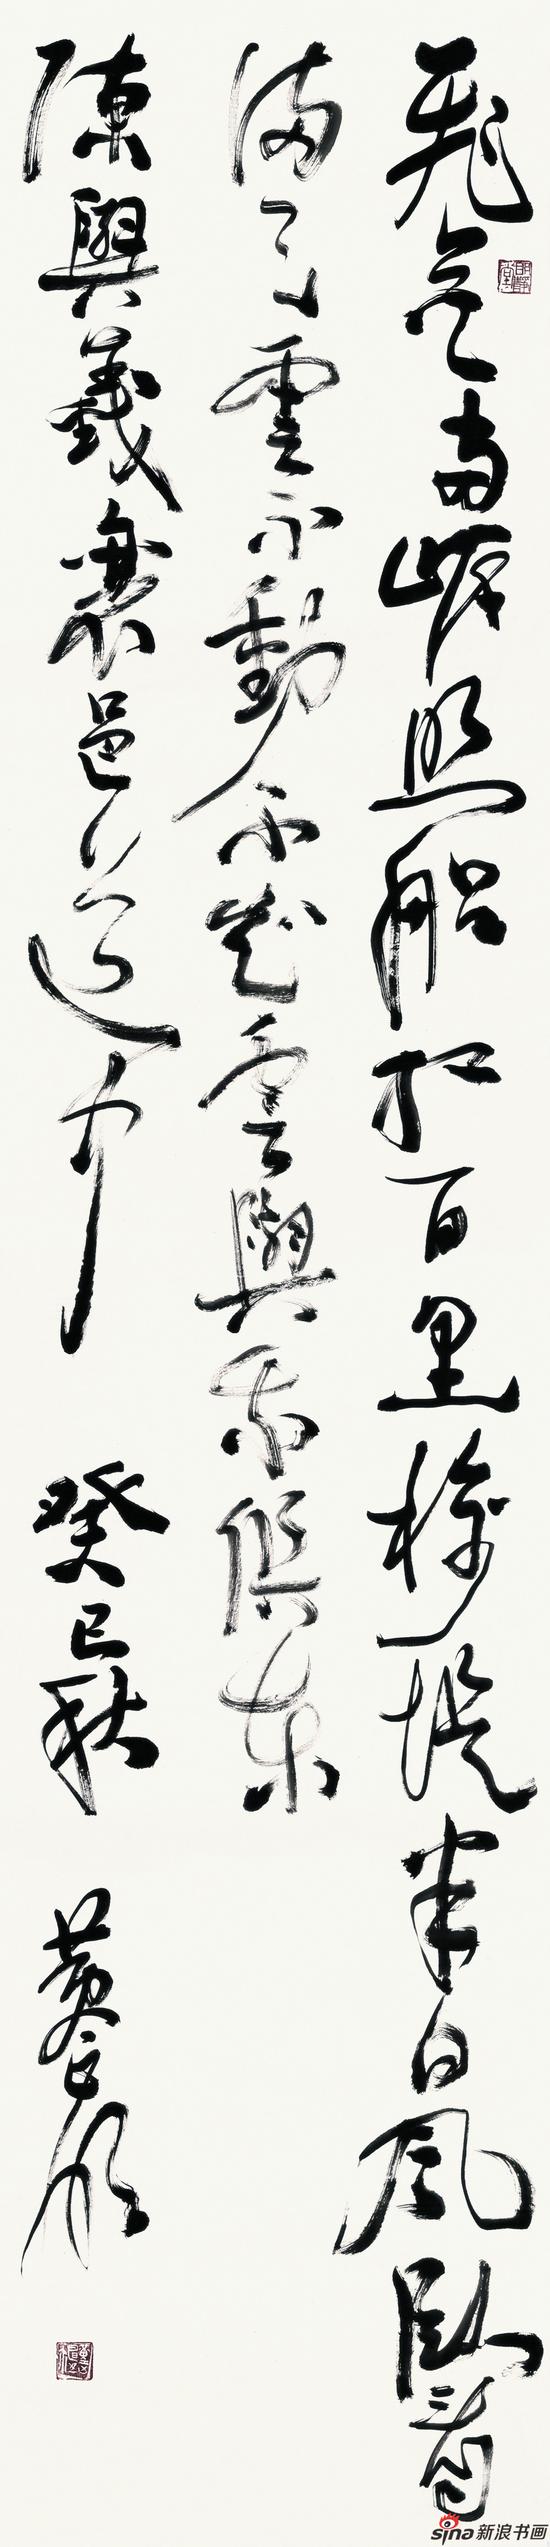 飛花兩岸照船紅百里榆堤半日風卧看
滿天雲不動不知雲與我俱東
陳與義襄邑道中 癸巳秋
sina 新浪书画